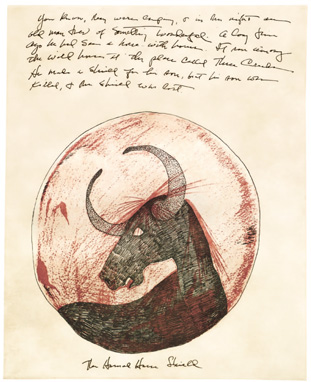 You know, they were camping, & in the night an
old man of something wonderful. A long time
ago he had seen a horse with horns. It ran among
the wild horses at the place called
He made a shield for his son, but his son was
killed, & the shield was lost
The Horned Horse Shield